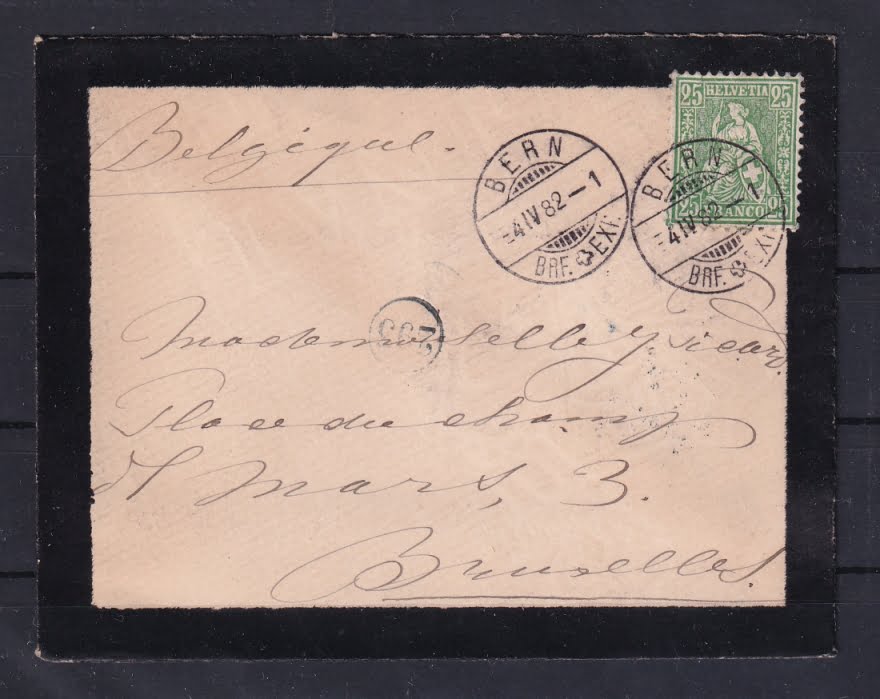 Belgique.
25 HELVETIA 25
25 FRANCO
BERN
4 IV 82 – 1
BRF. EXP.
BERN
4 IV 82 – 1
BRF. EXP.
Mademoiselle
Place du champ
d Mars, 3.
Bruxelles.